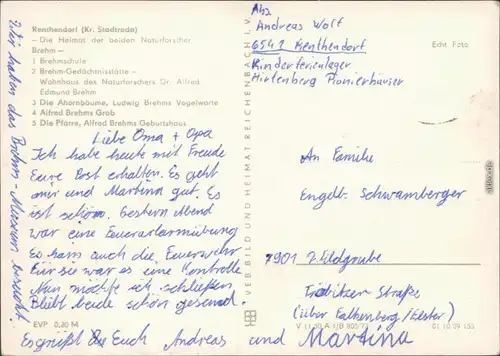 Renthendorf (Kr. Stadtroda)
– Die Heimat der beiden Naturforscher
Brehm –
1 Brehmschule
2 Brehm-Gedächtnisstätte –
Wohnhaus des Naturforschers Dr. Alfred
Edmund Brehm
3 Die Ahornbäume, Ludwig Brehms Vogelwarte
4 Alfred Brehms Grab
5 Die Pfarre, Alfred Brehms Geburtshaus
Liebe Oma + Opa
Ich habe heute mit Freude
Eure Post erhalten. Es geht
mir und Martina gut. Es
ist schön. Gestern Abend
war eine Feueralarmübung
Es kam auch die Feuerwehr
Für sie war es eine Kontrolle
Nun möchte ich schließen
Bleibt beide schön gesund.
Es grüßt Euch Andreas und Martina
Wir haben das Brehm-Museum besucht.
EVP 0,20 M
VEB BILD UND HEIMAT REICHENBACH I. V.
Abs
Andreas Wolf
6541 Renthendorf
Kinderferienlager
Hirtenberg Pionierhäuser
Echt Foto
An Familie
Engelb. Schwamberger
7901 Wildgrube
Trebitzer Straße
(über Falkenberg/Elster)
01 10 09 153